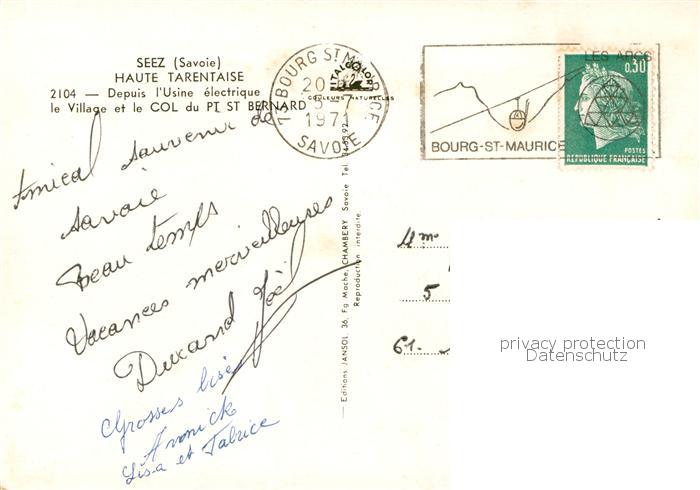 SEEZ (Savoie)
HAUTE TARENTAISE
2104 — Depuis l'Usine électrique
le Village et le COL du PT ST BERNARD
73 BOURG ST MAURICE
1971
SAVOIE
ITALCOLOR
COULEURS NATURELLES
LES ARCS
BOURG-ST-MAURICE
0,30
POSTES
REPUBLIQUE FRANÇAISE
Amical souvenir de
Savoie
Beau temps
Vacances merveilleuses
Durand Joël
Grosses bises
Annick
Lisa et Fabrice
— Editions JANSOL, 36, Fg Mache, CHAMBERY Savoie Tel. 34.53.92
Reproduction interdite.
Mme
5
61-
privacy protection
Datenschutz